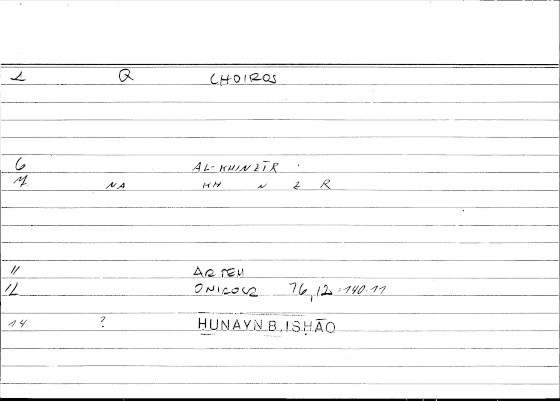 1 Q CHOIROS
6 AL-KHINZĪR
7 NA KH N Z R
11 ARTEM
12 ONIROCR 76,12=140.11
14 ? HUNAYN B. ISHĀQ